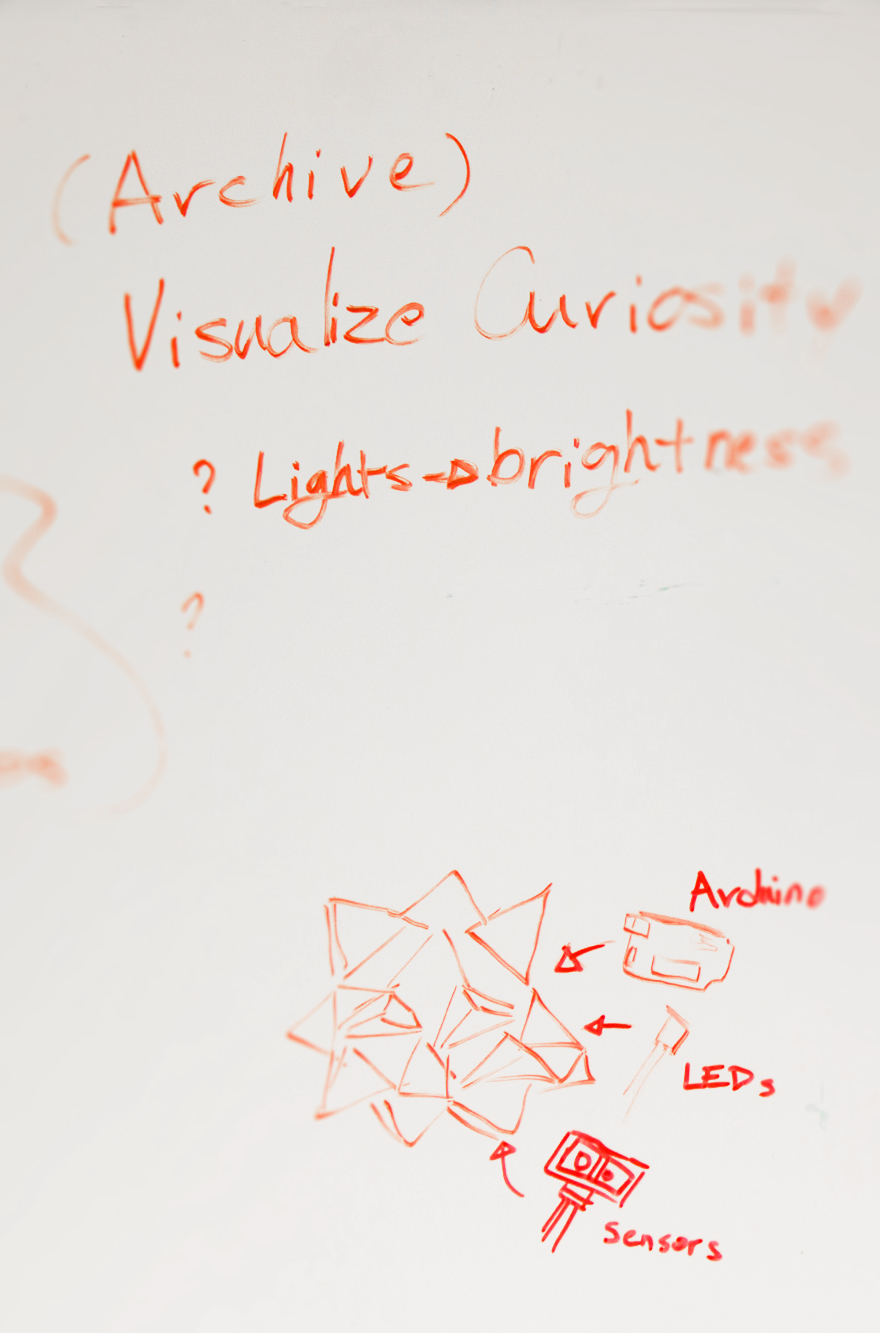 (Archive)
Visualize Curiosity
? Lights → brightness
?
Arduino
LEDs
Sensors